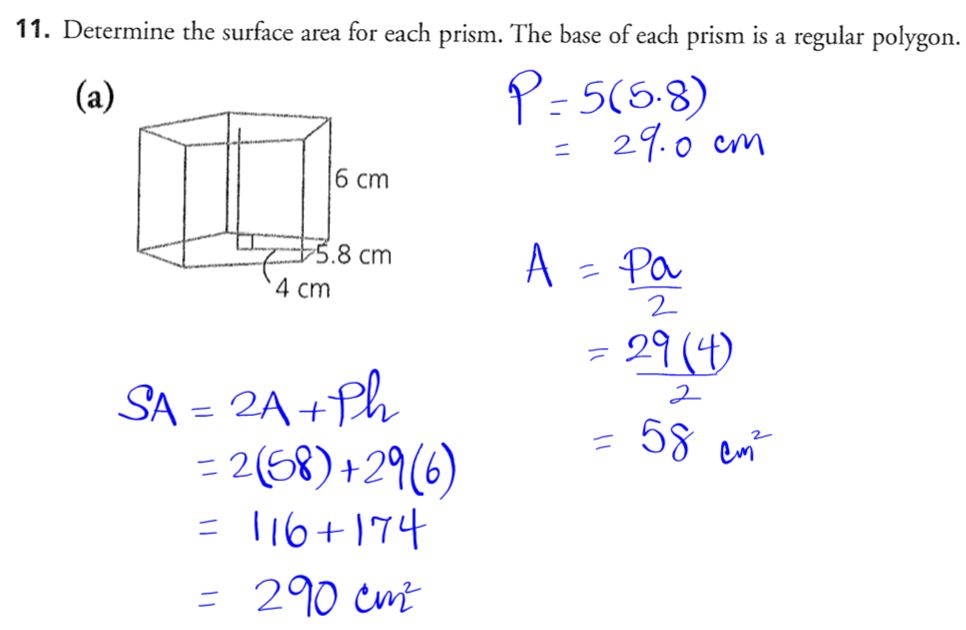 11. Determine the surface area for each prism. The base of each prism is a regular polygon.
(a)
6 cm
5.8 cm
4 cm
P = 5(5.8)
= 29.0 cm
A = Pa/2
= 29(4)/2
= 58 cm²
SA = 2A + Ph
= 2(58) + 29(6)
= 116 + 174
= 290 cm²